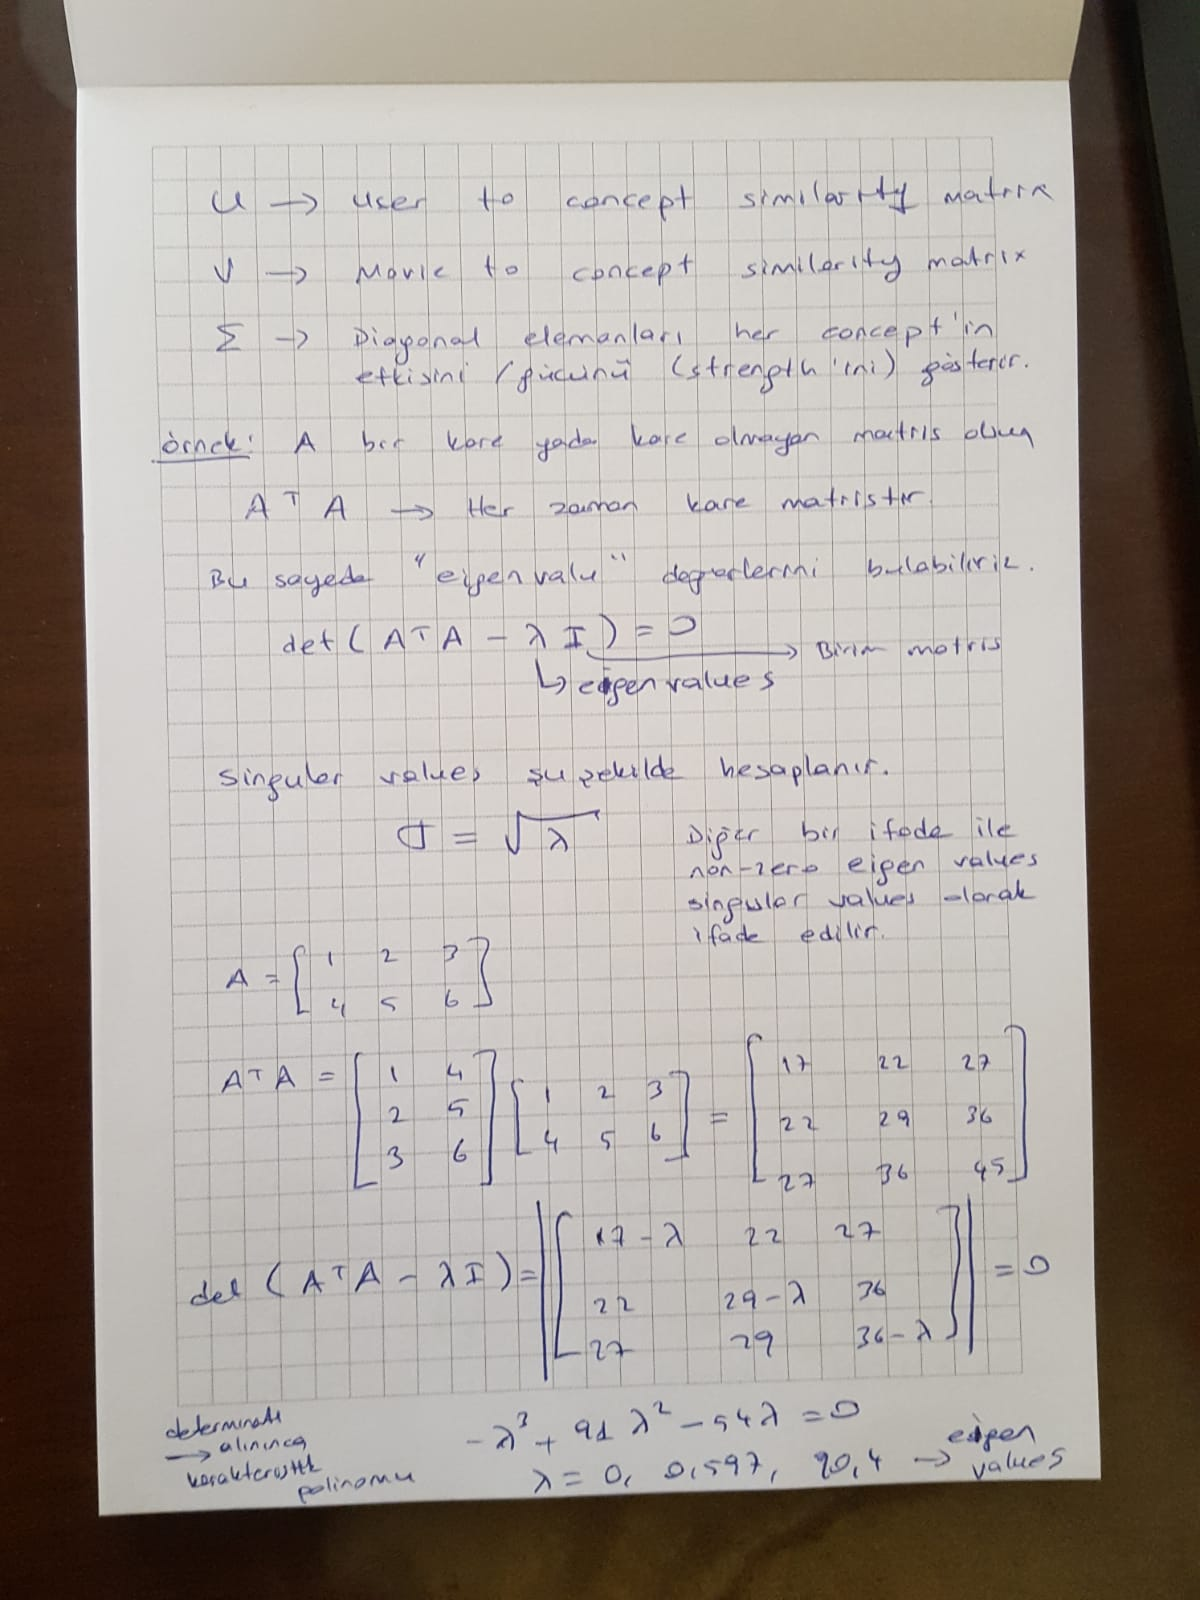 U → user to concept similarity matrix
V → Movie to concept similarity matrix
Σ → Diagonal elemanları her concept'in
etkisini / gücünü (strength'ini) gösterir.
örnek: A bir kare yada kare olmayan matris olsun
Aᵀ A → Her zaman kare matristir.
Bu sayede "eigen valu" degerlerini bulabiliriz.
det ( Aᵀ A − λ I ) = 0 → Birim matris
↳ eigen values
Singular values şu şekilde hesaplanır.
σ = √λ
Diğer bir ifade ile
non-zero eigen values
singular values olarak
ifade edilir.
A = [ 1 2 3
4 5 6 ]
Aᵀ A = [ 1 4 ] [ 1 2 3 ] = [ 17 22 27 ]
2 5 4 5 6 22 29 36
3 6 27 36 45
det ( Aᵀ A − λ I ) = | 17 − λ 22 27 | = 0
22 29 − λ 36
27 29 36 − λ
determinatı
→ alınınca
karakteristik
polinomu
−λ³ + 91 λ² − 54 λ = 0
λ = 0, 0,597, 90,4 → eigen
values